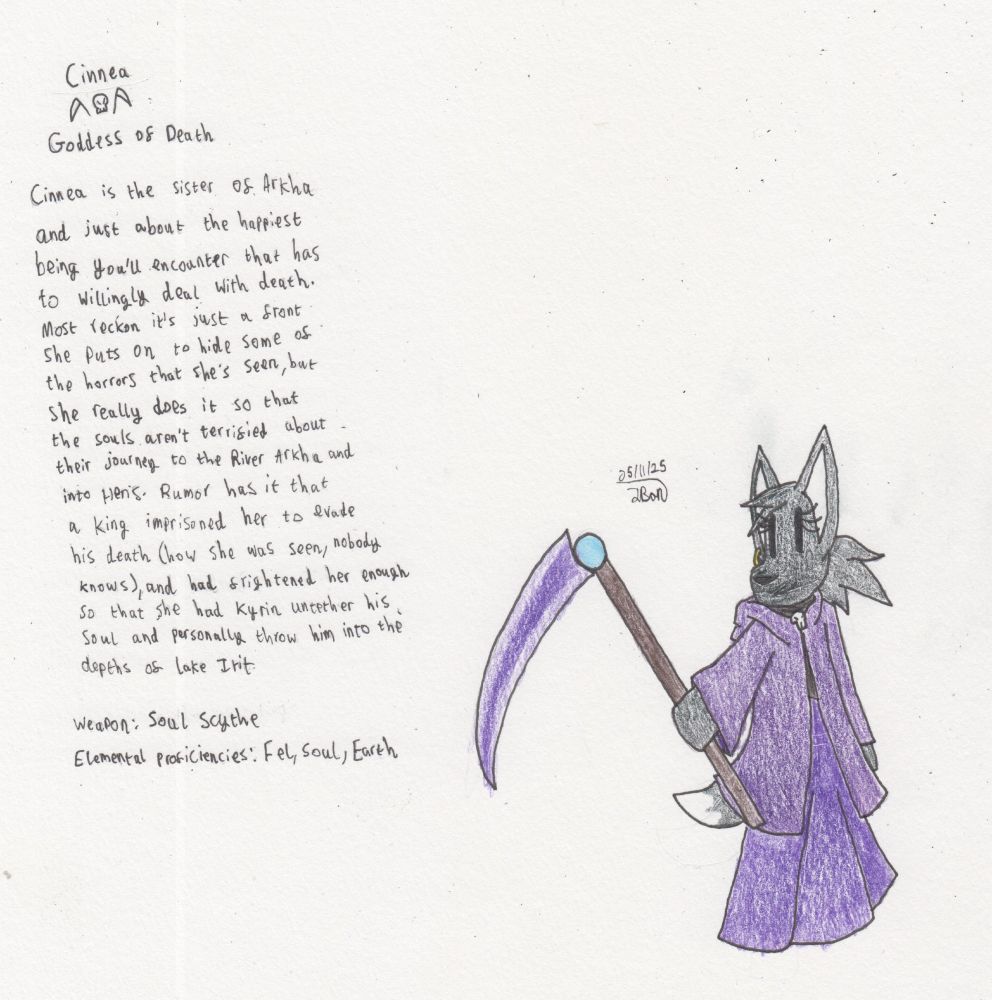 Cinnea
Goddess of Death
Cinnea is the sister of Arkha
and just about the happiest
being you'll encounter that has
to willingly deal with death.
Most reckon it's just a front
she puts on to hide some of
the horrors that she's seen, but
she really does it so that
the souls aren't terrified about
their journey to the River Arkha and
into Heris. Rumor has it that
a king imprisoned her to evade
his death (how she was seen, nobody
knows), and had frightened her enough
so that she had Kyrin untether his
soul and personally throw him into the
depths of lake Irit.
Weapon: Soul Scythe
Elemental proficiencies: Fel, Soul, Earth
05/11/25